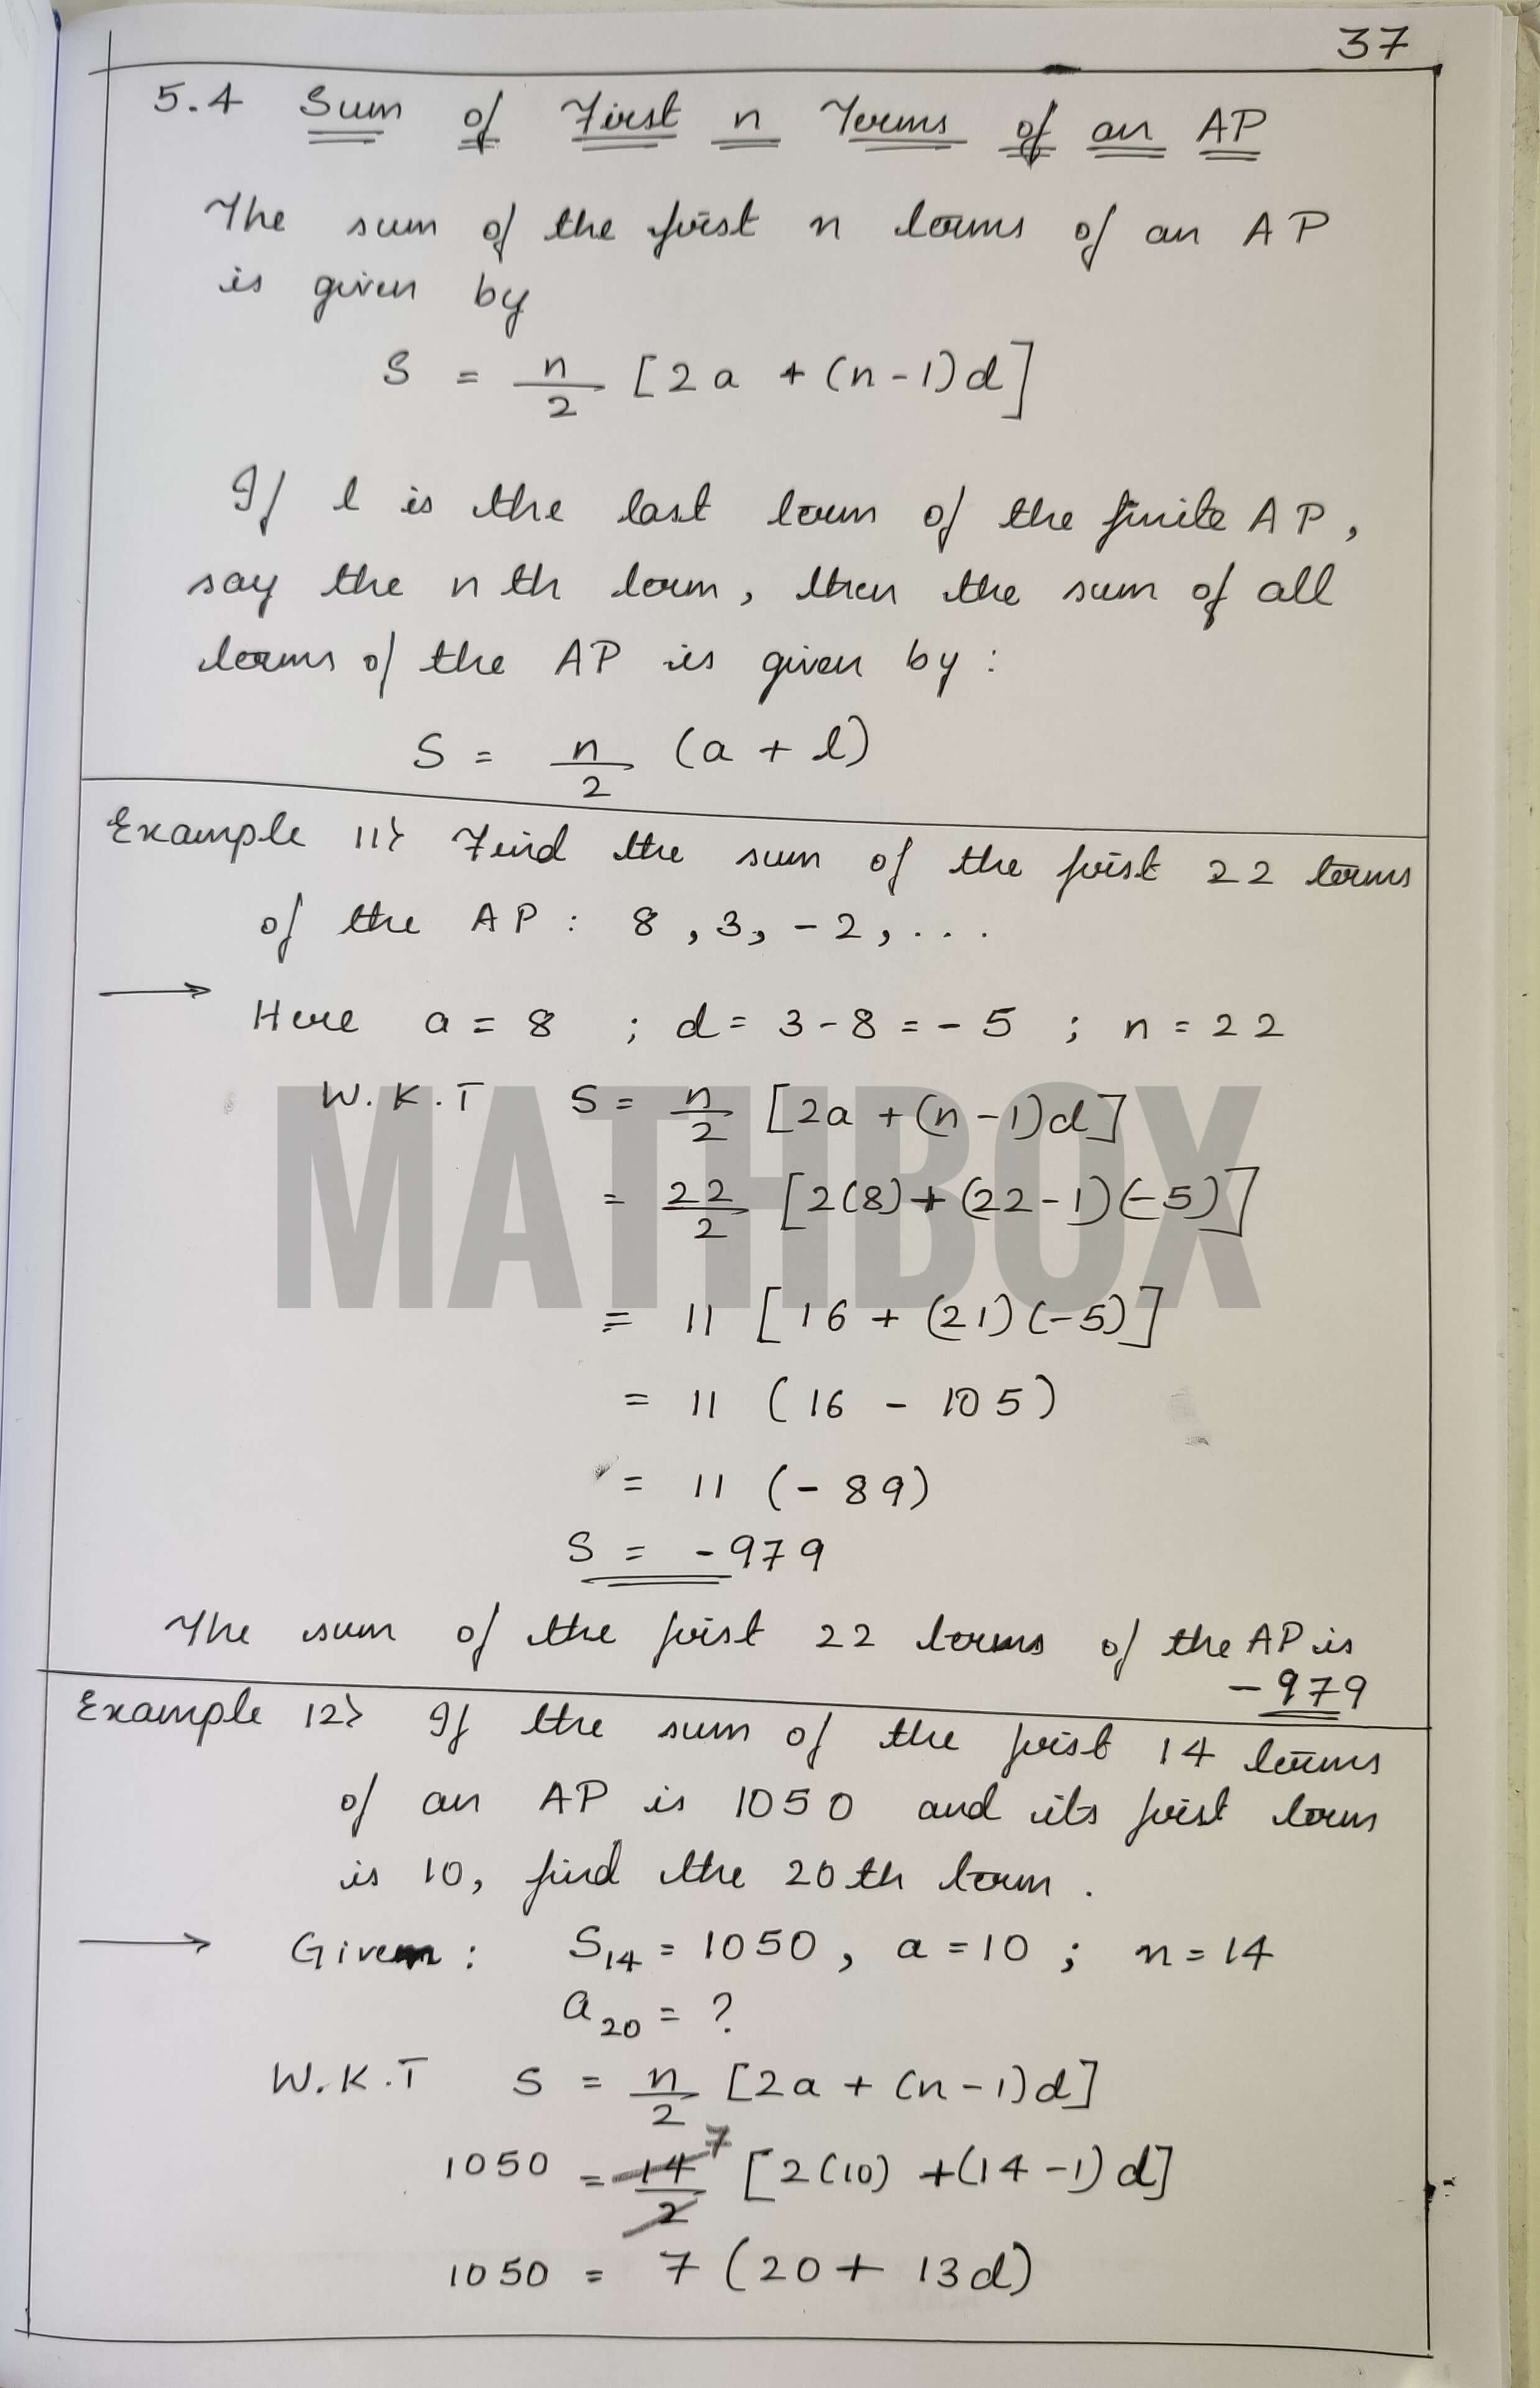 37
5.4 Sum of First n Terms of an AP
The sum of the first n terms of an AP
is given by
S = n/2 [2a + (n-1)d]
If l is the last term of the finite AP,
say the nth term, then the sum of all
terms of the AP is given by:
S = n/2 (a + l)
Example 11> Find the sum of the first 22 terms
of the AP : 8, 3, -2, ...
→ Here a = 8 ; d = 3-8 = -5 ; n = 22
W.K.T S = n/2 [2a + (n-1)d]
= 22/2 [2(8) + (22-1)(-5)]
= 11 [16 + (21)(-5)]
= 11 (16 - 105)
= 11 (-89)
S = -979
The sum of the first 22 terms of the AP is
-979
Example 12> If the sum of the first 14 terms
of an AP is 1050 and its first term
is 10, find the 20th term.
→ Given : S14 = 1050, a = 10 ; n = 14
a20 = ?
W.K.T S = n/2 [2a + (n-1)d]
1050 = 14/2 7 [2(10) + (14-1)d]
1050 = 7 (20 + 13d)
MATHBOX